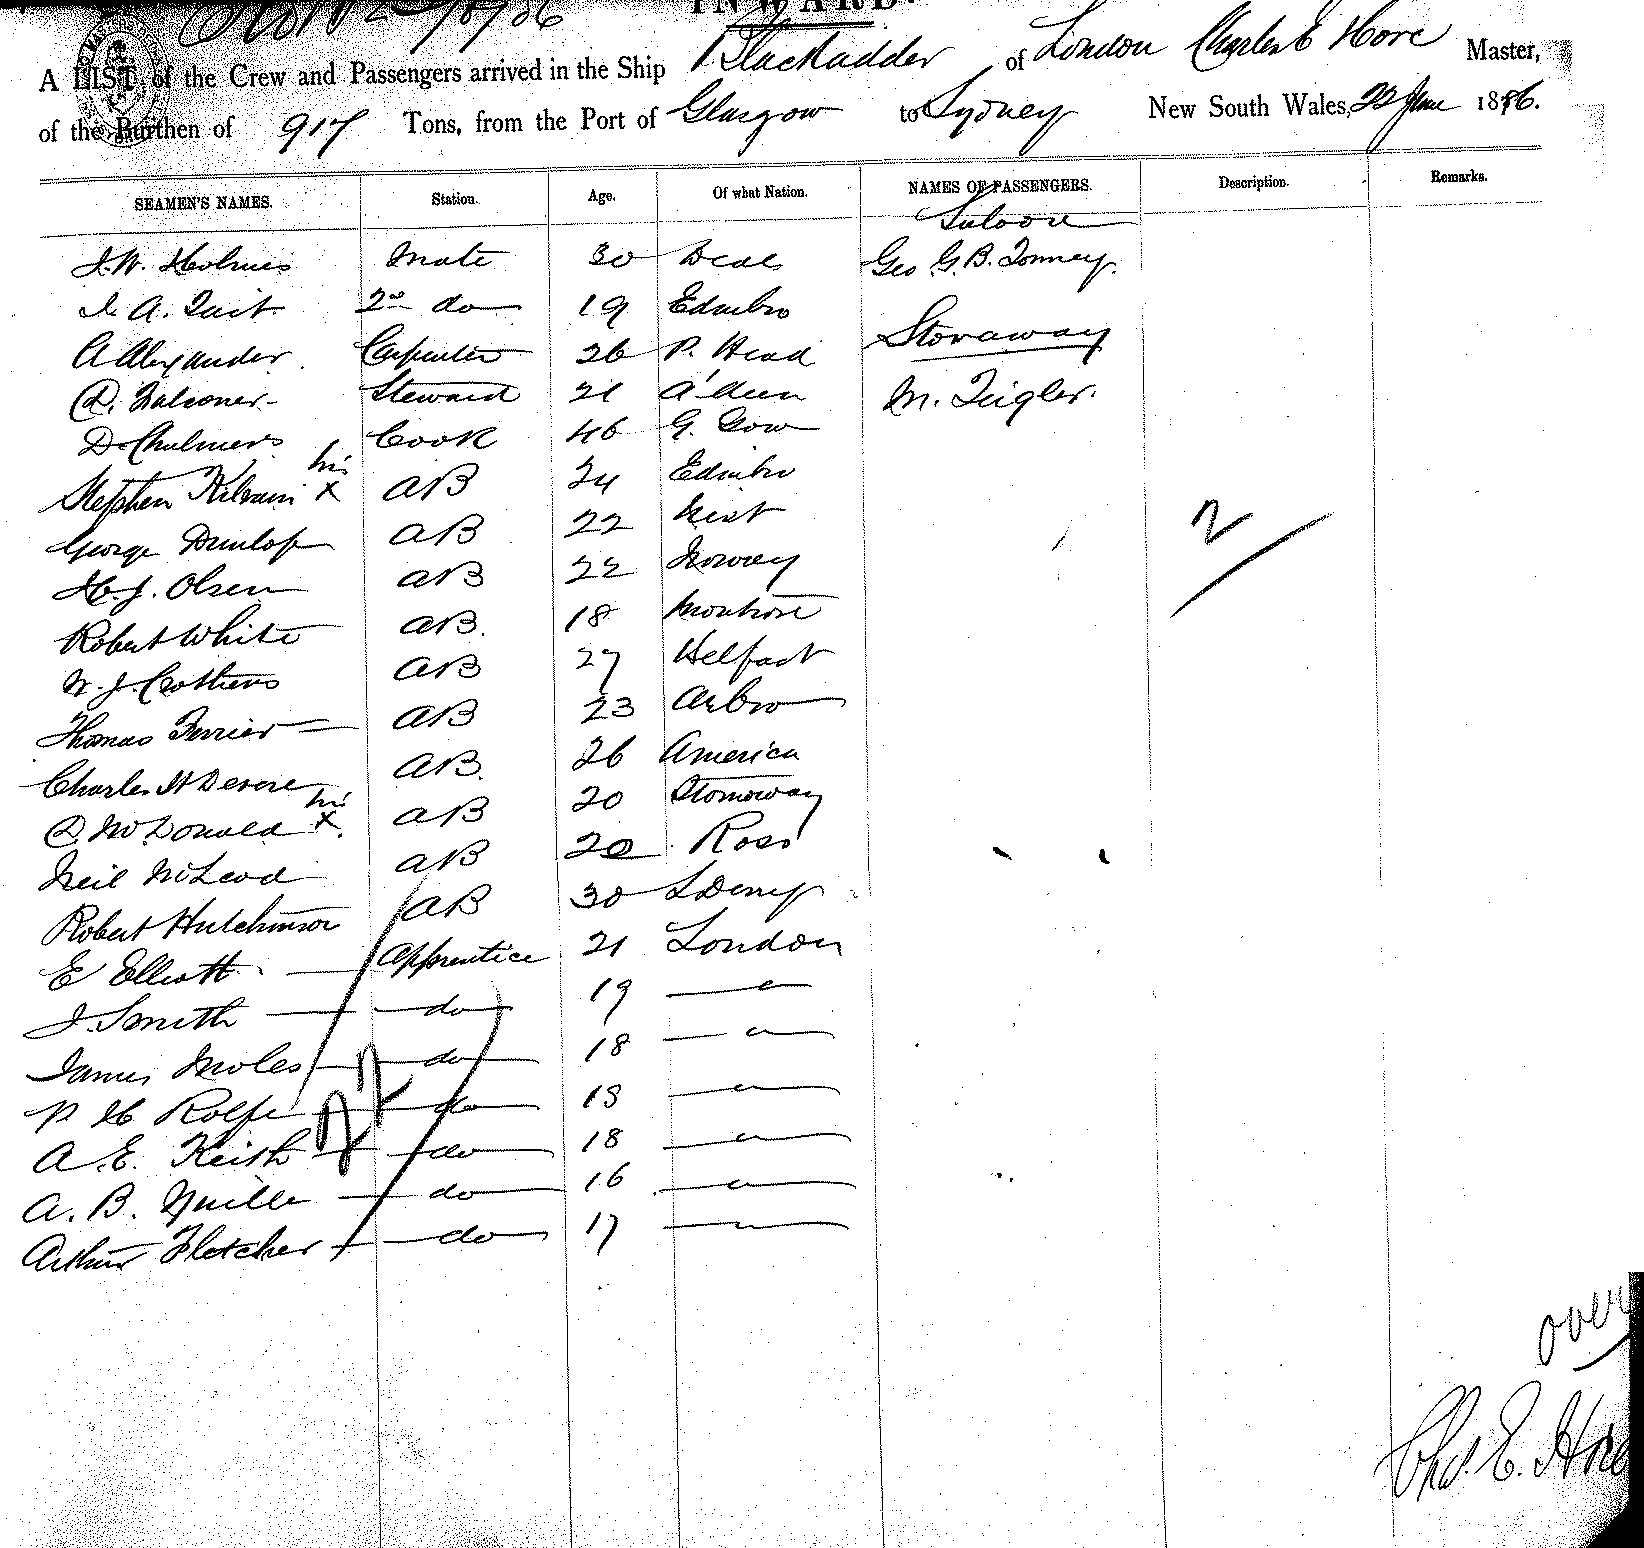 INWARD.
A LIST of the Crew and Passengers arrived in the Ship Blackadder of London Charles E Hore Master,
of the Burthen of 917 Tons, from the Port of Glasgow to Sydney New South Wales, 22 June 1886.
SEAMEN'S NAMES. Station. Age. Of what Nation. NAMES OF PASSENGERS. Description. Remarks.
Saloon
J.W. Holmes Mate 30 Deal Geo G.B. Tonney.
A. Tait 2nd do 19 Edinbro
Storaway
A Alexander Carpenter 26 P. Head
D. Falconer Steward 21 A'deen M. Teigler.
D Chalmers Cook 46 G. Gow
his
Stephen X AB 24 Edinbro
George Dunlop AB 22
H.J. Olsen AB 22 Norway
2
Robert White AB. 18 Montrose
W.J. Crothers AB 27 Belfast
Thomas Ferrier AB 23 Arbro
Charles H Devere AB. 26 America
his
D. McDonald X. AB 20 Stornoway
Neil McLeod AB 20 Ross
Robert Hutchinson AB 30 LDerry
E Elliott Apprentice 21 London
J. Smith do 19 "
James Moles do 18 "
P H Rolfe do 18 "
A.E. Keith do 18 "
A.B. do 16 "
Arthur Fletcher do 17 "
22
over
Chas. E. Hore